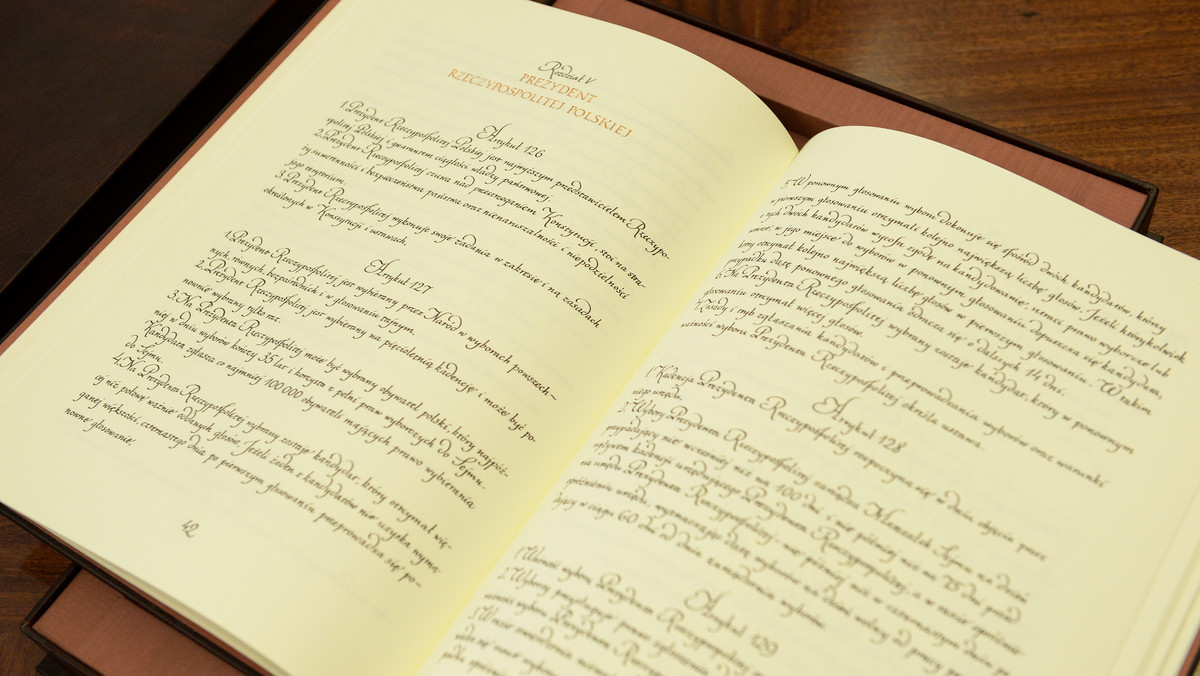 Rozdział V
PREZYDENT
RZECZYPOSPOLITEJ POLSKIEJ
Artykuł 126
1. Prezydent Rzeczypospolitej Polskiej jest najwyższym przedstawicielem Rzeczypo-
spolitej Polskiej i gwarantem ciągłości władzy państwowej.
2. Prezydent Rzeczypospolitej czuwa nad przestrzeganiem Konstytucji, stoi na stra-
ży suwerenności i bezpieczeństwa państwa oraz nienaruszalności i niepodzielności
jego terytorium.
3. Prezydent Rzeczypospolitej wykonuje swoje zadania w zakresie i na zasadach
określonych w Konstytucji i ustawach.
Artykuł 127
1. Prezydent Rzeczypospolitej jest wybierany przez Naród w wyborach powszech-
nych, równych, bezpośrednich i w głosowaniu tajnym.
2. Prezydent Rzeczypospolitej jest wybierany na pięcioletnią kadencję i może być po-
nownie wybrany tylko raz.
3. Na Prezydenta Rzeczypospolitej może być wybrany obywatel polski, który najpóź-
niej w dniu wyborów kończy 35 lat i korzysta z pełni praw wyborczych do Sejmu.
Kandydata zgłasza co najmniej 100 000 obywateli mających prawo wybierania
do Sejmu.
4. Na Prezydenta Rzeczypospolitej wybrany zostaje kandydat, który otrzymał wię-
cej niż połowę ważnie oddanych głosów. Jeżeli żaden z kandydatów nie uzyska wyma-
ganej większości, czternastego dnia po pierwszym głosowaniu przeprowadza się po-
nowne głosowanie.
42
5. W ponownym głosowaniu wyboru dokonuje się spośród dwóch kandydatów, którzy
w pierwszym głosowaniu otrzymali kolejno największą liczbę głosów. Jeżeli którykolwiek
z tych dwóch kandydatów wycofa zgodę na kandydowanie, utraci prawo wyborcze lub
umrze, w jego miejsce do wyborów w ponownym głosowaniu dopuszcza się kandydata,
który otrzymał kolejno największą liczbę głosów w pierwszym głosowaniu. W takim
przypadku datę ponownego głosowania odracza się o dalszych 14 dni.
6. Na Prezydenta Rzeczypospolitej wybrany zostaje kandydat, który w ponownym
głosowaniu otrzymał więcej głosów.
7. Zasady i tryb zgłaszania kandydatów i przeprowadzania wyborów oraz warunki
ważności wyboru Prezydenta Rzeczypospolitej określa ustawa.
Artykuł 128
1. Kadencja Prezydenta Rzeczypospolitej rozpoczyna się w dniu objęcia przez
niego urzędu.
2. Wybory Prezydenta Rzeczypospolitej zarządza Marszałek Sejmu na dzień
przypadający nie wcześniej niż na 100 dni i nie później niż na 75 dni przed
upływem kadencji urzędującego Prezydenta Rzeczypospolitej, a w razie opróżnie-
nia urzędu Prezydenta Rzeczypospolitej - nie później niż w czternastym dniu po
opróżnieniu urzędu, wyznaczając datę wyborów na dzień wolny od pracy
dający w ciągu 60 dni od dnia zarządzenia wyborów.
Artykuł 129
1. Ważność wyboru Prezydenta Rzeczypospolitej
2. Wyborcy przysługuje prawo zgłoszenia
ważności wyboru Prezydenta Rzeczypospolitej
3. W razie stwierdzenia nieważności